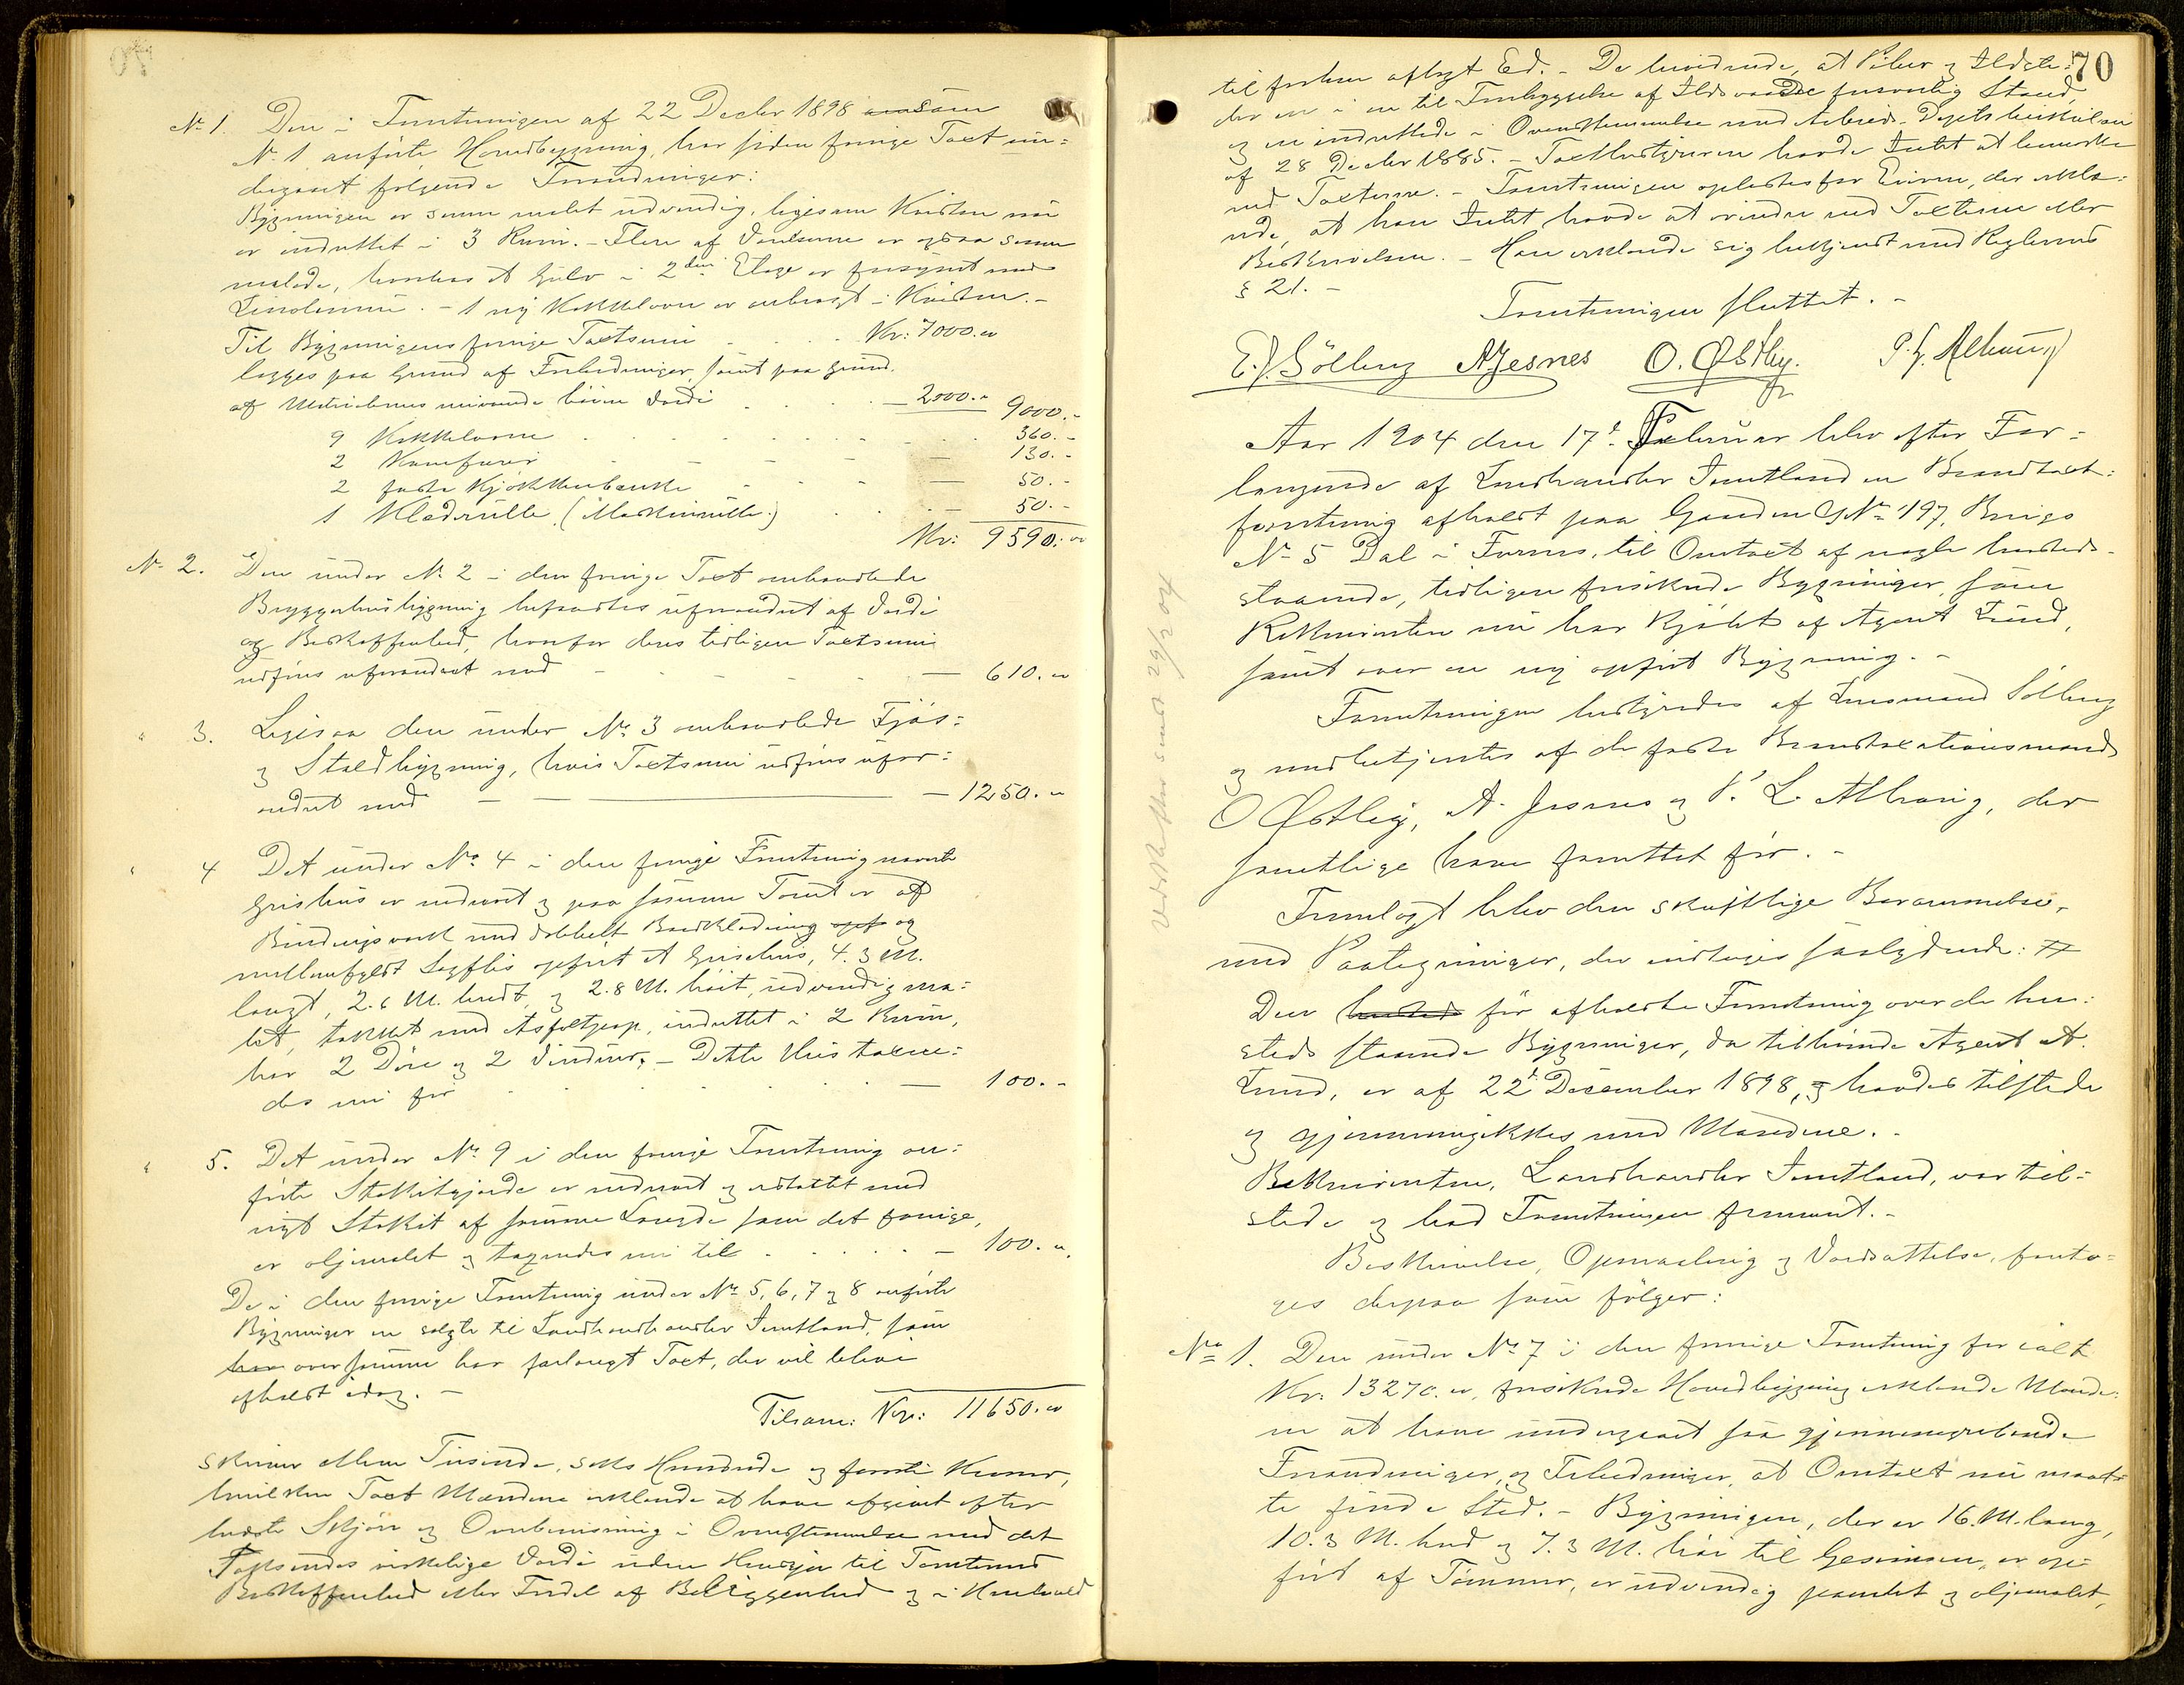 No 1. Den i Forretningen af 22 Decbr 1898 som
No 1 anførte Hovedbygning, har siden forrige Taxt un-
dergaaet følgende Forandringer:
Bygningen er senere malet udvendig, ligesom Kvisten nu
er indrettet i 3 Rum. - Flere af Værelserne er ogsaa senere
malede, hvorhos et Gulv i 2den Etage er forsynet med
Linoleum. - 1 ny Kakkelovn er anbragt i Kvisten. -
Til Bygningens forrige Taxtsum . . . Kr: 7000.00
lægges paa Grund af Forbedringer samt paa Grund
af Materialernes nuværende høiere Værdi . . . — 2000.- 9000.-
9 Kakkelovne . . . 360.-
2 Komfurer — 130.-
2 faste Kjøkkenbænke — 50.-
1 Klædrulle (Maskinrulle) . . — 50.-
Kr: 9590.00
No 2. Den under No 2 i den forrige Taxt omhandlede
Bryggerhusbygning befandtes uforandret af Værdi
og Beskaffenhed, hvorfor dens tidligere Taxtsum
udføres uforandret med — 610.00
" 3. Ligesaa den under No 3 omhandlede Fjøs-
og Staldbygning, hvis Taxtsum udføres ufor-
andret med — 1250.00
" 4 Det under No 4 i den forrige Forretning nævnte
Grishus er nedrevet og paa samme Tomt er af
Bindingsverk med dobbelt Bordklædning opf og
mellemfyldt Sagflis opført et Grisehus, 4.3 M.
langt, 2.6 M. bredt og 2.8 M. høit, udvendig ma-
let, tækket med Asfaltpap, indrettet i 2 Rum,
har 2 Døre og 2 Vinduer. - Dette Hus taxere-
des nu for . . . — 100.-
" 5. Det under No 9 i den forrige Forretning an-
førte Stakitgjerde er nedrevet og erstattet med
nyt Stakit af samme Længde som det forrige,
er oljemalet og taxeredes nu til . . . — 100.00
De i den forrige Forretning under No 5, 6, 7 og 8 anførte
Bygninger er solgte til Landhandler Jemtland, som
har over samme har forlangt Taxt, der vil blive
afholdt idag. -
Tilsam: Kr: 11650.00
skriver elleve Tusinde, seks Hundrede og femti Kroner,
hvilken Taxt Mændene erklærede at have afgivet efter
bedste Skjøn og Overbevisning i Overensstemmelse med det
Taxeredes virkelige Værdi uden Hensyn til Tomtens
Beskaffenhed eller Fordel af Beliggenhed og i Henhold
70
til forhen aflagt Ed. - De bevidnede, at Piber og Ildste-
der er i en til Forebyggelse af Ildsvaade forsvarlig Stand,
og er indrettede i Overensstemmelse med Arbeids-Dept's Cirkulære
af 28 Decbr 1885. - Taxtbestyreren havde Intet at bemerke
ved Taxterne. - Forretningen oplæstes for Eieren, der erklæ-
rede, at han Intet havde at erindre ved Taxterne eller
Beskrivelsen. - Han erklærede sig bekjendt med Reglernes
§ 21. -
Forretningen sluttet. -
E. J. Sølberg A Jesnes O. Østby. P. L. Alhaug
Aar 1904 den 17d. Februar blev efter For-
langende af Landhandler Jemtland en Brandtaxt-
forretning afholdt paa Gaarden G No 197, Brugs
No 5 Dal i Furnes, til Omtaxt af nogle hersteds-
staaende, tidligere forsikrede Bygninger, som
Rekvirenten nu har kjøbt af Agent Lund,
samt over en ny opført Bygning. -
Forretningen bestyredes af Lensmand Sølberg
og medbetjentes af de faste Brandtaxationsmænd
O Østby, A. Jesnes og P. L. Alhaug, der
samtlige have forrettet før. -
Fremlagt blev den skriftlige Berammelse,
med Paategninger, der indtages saalydende: #
Den hersteds før afholdte Forretning over de her-
steds staaende Bygninger, da tilhørende Agent A.
Lund, er af 22d December 1898, og havdes tilstede
og gjennemgikkes med Mændene. -
Rekvirenten, Landhandler Jemtland, var til-
stede og bad Forretningen fremmet. -
Beskrivelse, Opmaaling og Værdsættelse, foreto-
ges derpaa som følger:
No 1. Den under No 7 i den forrige Forretning for ialt
Kr. 13270.00 forsikrede Hovedbygning erklærede Mænde-
ne at have undergaaet saa gjennemgribende
Forandringer og Forbedringer, at Omtaxt nu maat-
te finde Sted. - Bygningen, der er 16. M. lang,
10.3 M. bred og 7.3 M. høi til Gesimsen, er op-
ført af Tømmer, er udvendig panelet og oljemalet,
29/2 04